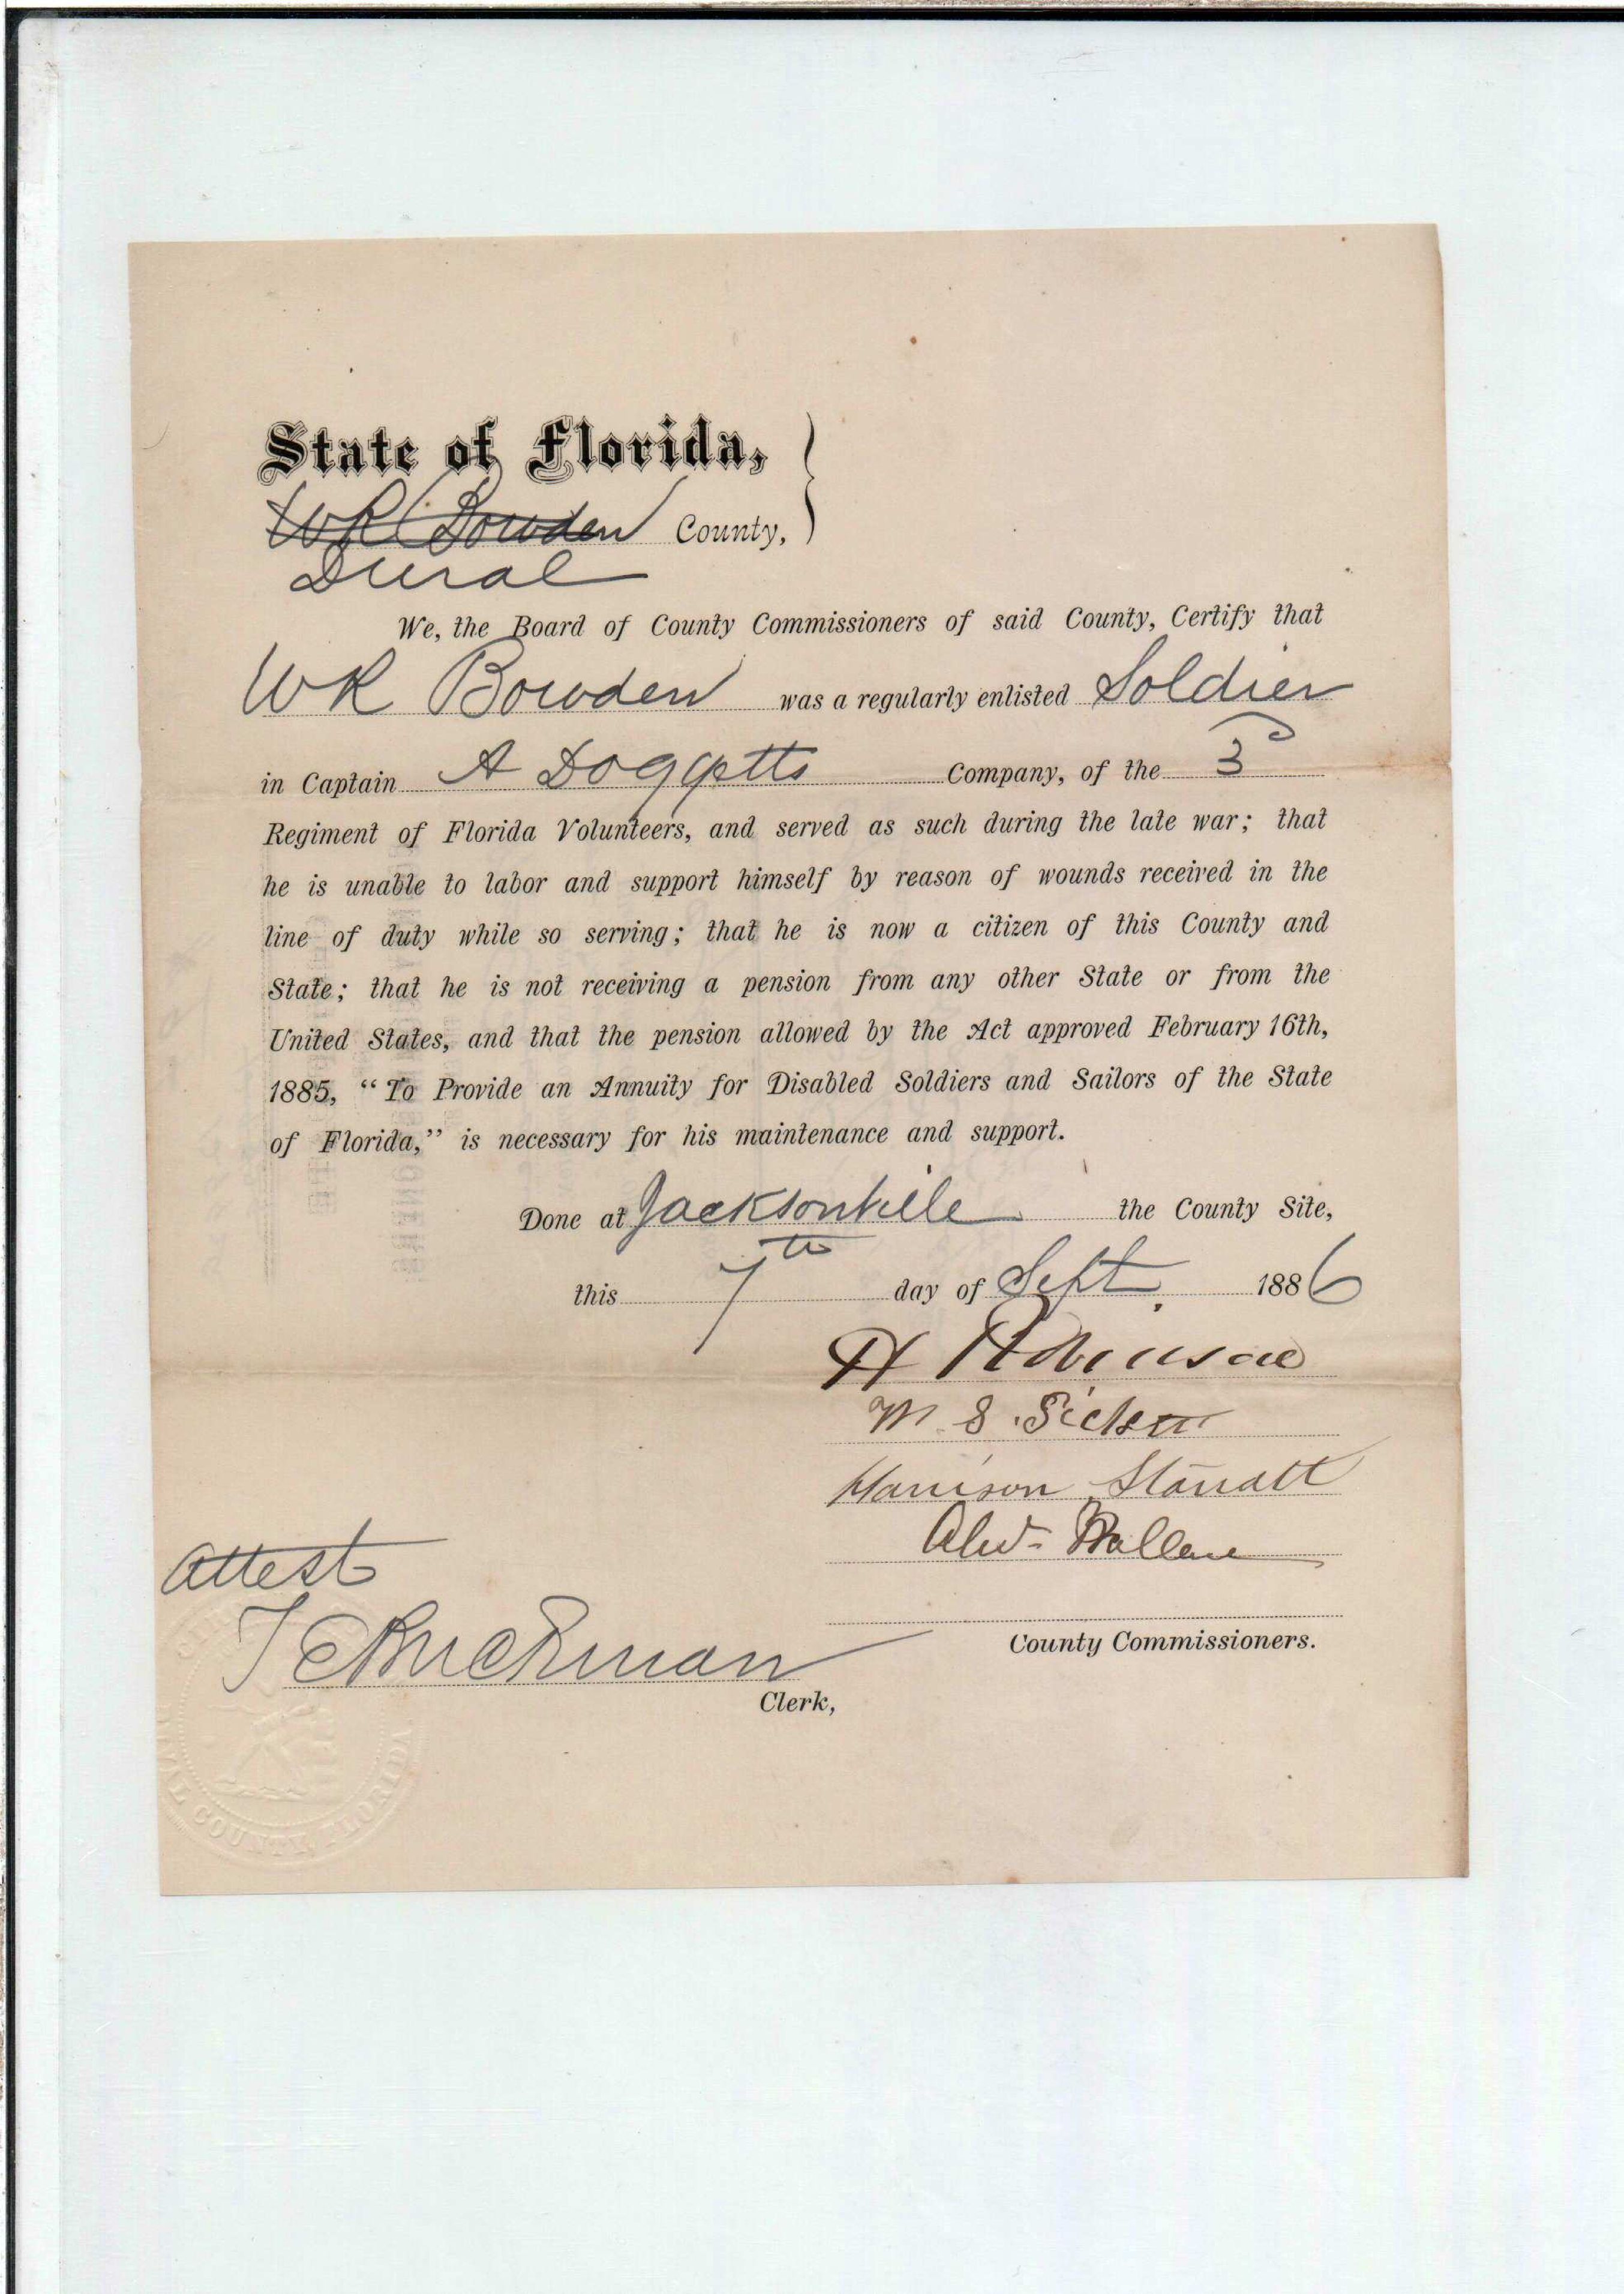 State of Florida,
WR Bowden County,
Duval
We, the Board of County Commissioners of said County, Certify that
WR Bowden was a regularly enlisted Soldier
in Captain A Doggetts Company, of the 3d
Regiment of Florida Volunteers, and served as such during the late war; that
he is unable to labor and support himself by reason of wounds received in the
line of duty while so serving; that he is now a citizen of this County and
State; that he is not receiving a pension from any other State or from the
United States, and that the pension allowed by the Act approved February 16th,
1885, “To Provide an Annuity for Disabled Soldiers and Sailors of the State
of Florida,” is necessary for his maintenance and support.
Done at Jacksonville the County Site,
this 7th day of Sept. 1886
H Robinson
M S
Harrison Starratt
Wallace
County Commissioners.
Attest
T E Buckman
Clerk,
DUVAL COUNTY, FLORIDA